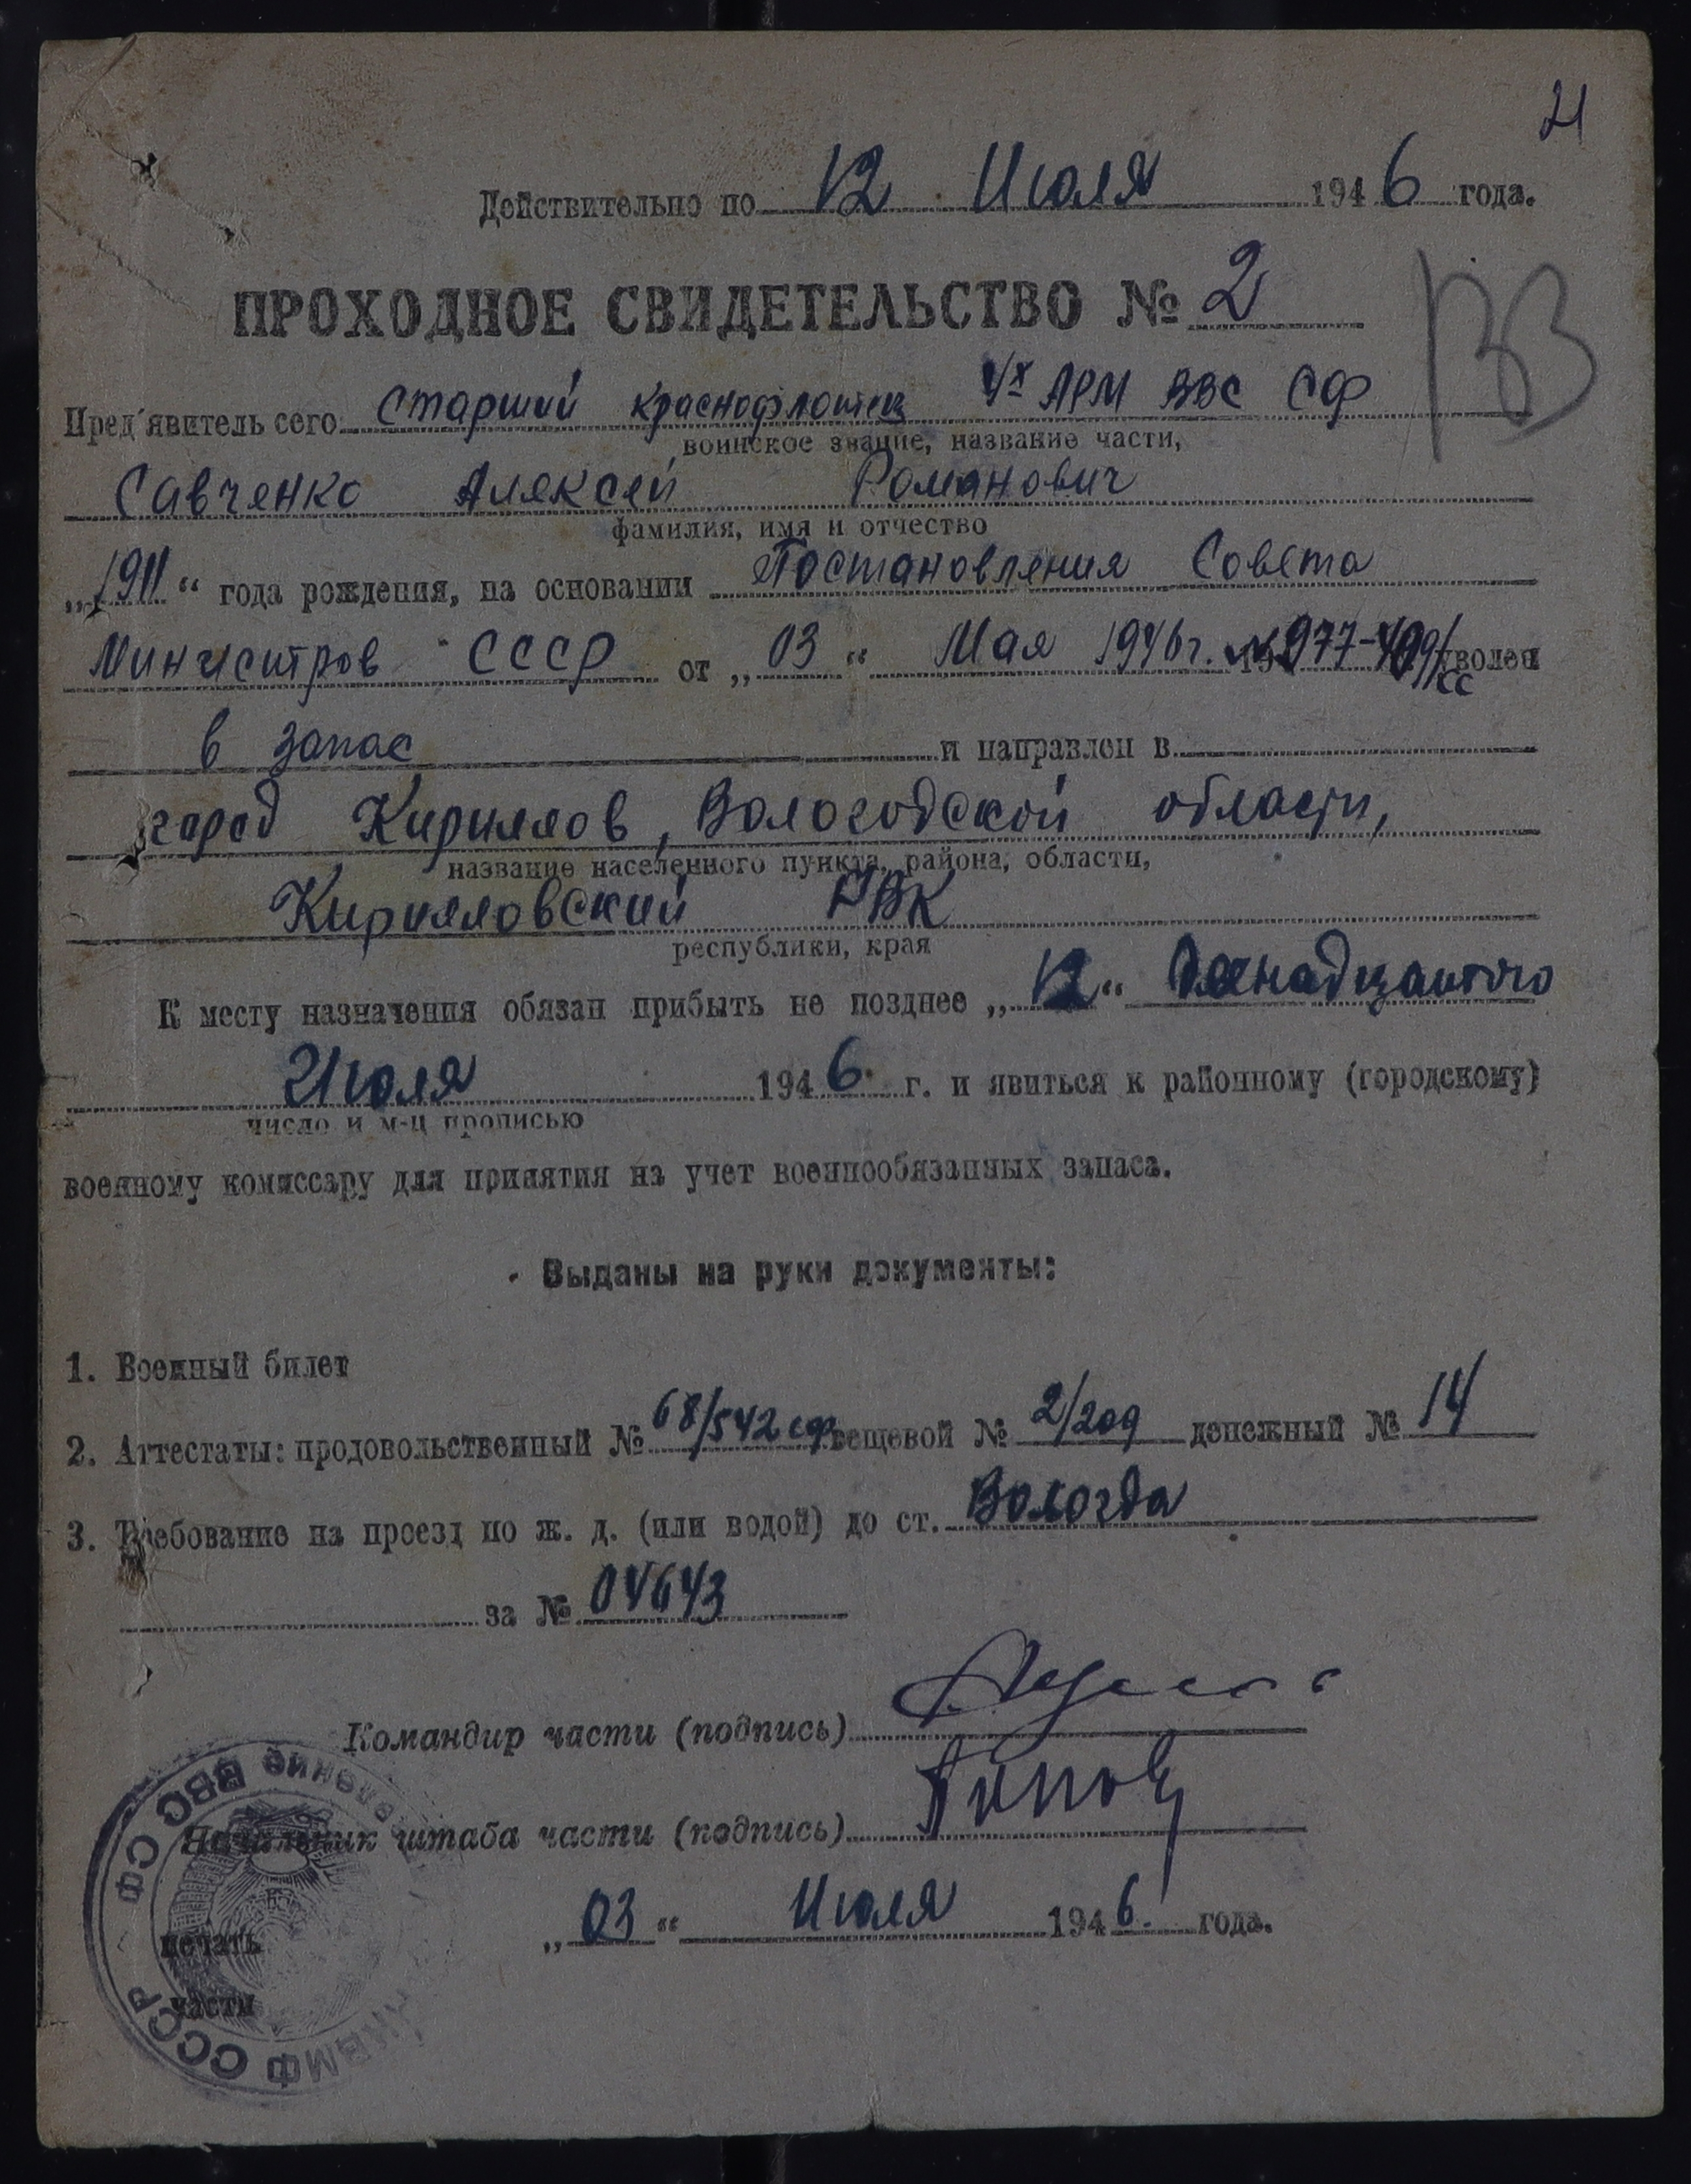 21
Действительно по 12 Июля 1946 года.
ПРОХОДНОЕ СВИДЕТЕЛЬСТВО № 2
Пред'явитель сего Старший краснофлотец АРМ ВВС СФ
воинское звание, название части,
Савченко Алексей Романович
фамилия, имя и отчество
„1911“ года рождения, на основании Постановления Совета
Министров СССР от „03“ Мая 1946г. уволен
в запас и направлен в
город Кириллов, Вологодской области,
название населенного пункта, района, области,
Кирилловский РВК
республики, края
К месту назначения обязан прибыть не позднее „12“ Двенадцатого
Июля 1946 г. и явиться к районному (городскому)
число и м-ц прописью
военному комиссару для принятия на учет военнообязанных запаса.
Выданы на руки документы:
1. Военный билет
2. Аттестаты: продовольственный № 68/542 сф вещевой № 2/209 денежный № 14
3. Требование на проезд по ж. д. (или водой) до ст. Вологда
за № 04643
Командир части (подпись)
Начальник штаба части (подпись) Попов
печать
части
„03“ Июля 1946 года.
ВВС СФ СССР